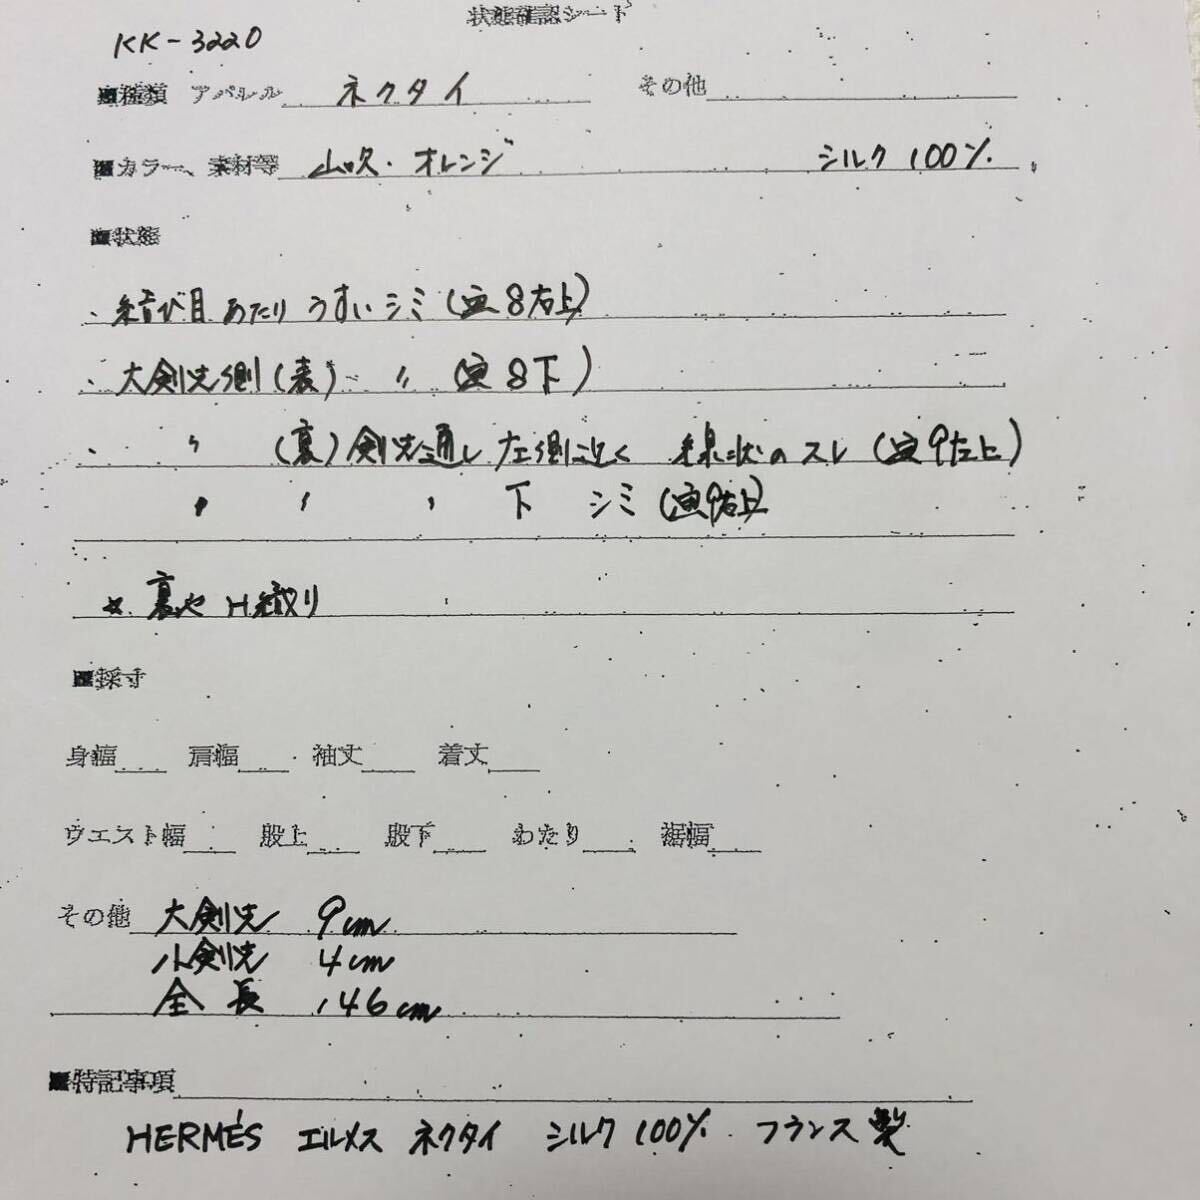 状態確認シート
KK-3220
■種類 アパレル ネクタイ その他
■カラー、素材等 山吹・オレンジ シルク 100%
■状態
・結び目あたり うすいシミ (写8右上)
・大剣先側(表) 〃 (写8下)
・ 〃 (裏)剣先通し左側近く 線状のスレ (写9左上)
〃 〃 〃 下 シミ (写9右上)
☆裏地 H織り
■採寸
身幅 肩幅 袖丈 着丈
ウエスト幅 股上 股下 わたり 裾幅
その他 大剣先 9cm
小剣先 4cm
全長 146cm
■特記事項
HERMÈS エルメス ネクタイ シルク100% フランス製